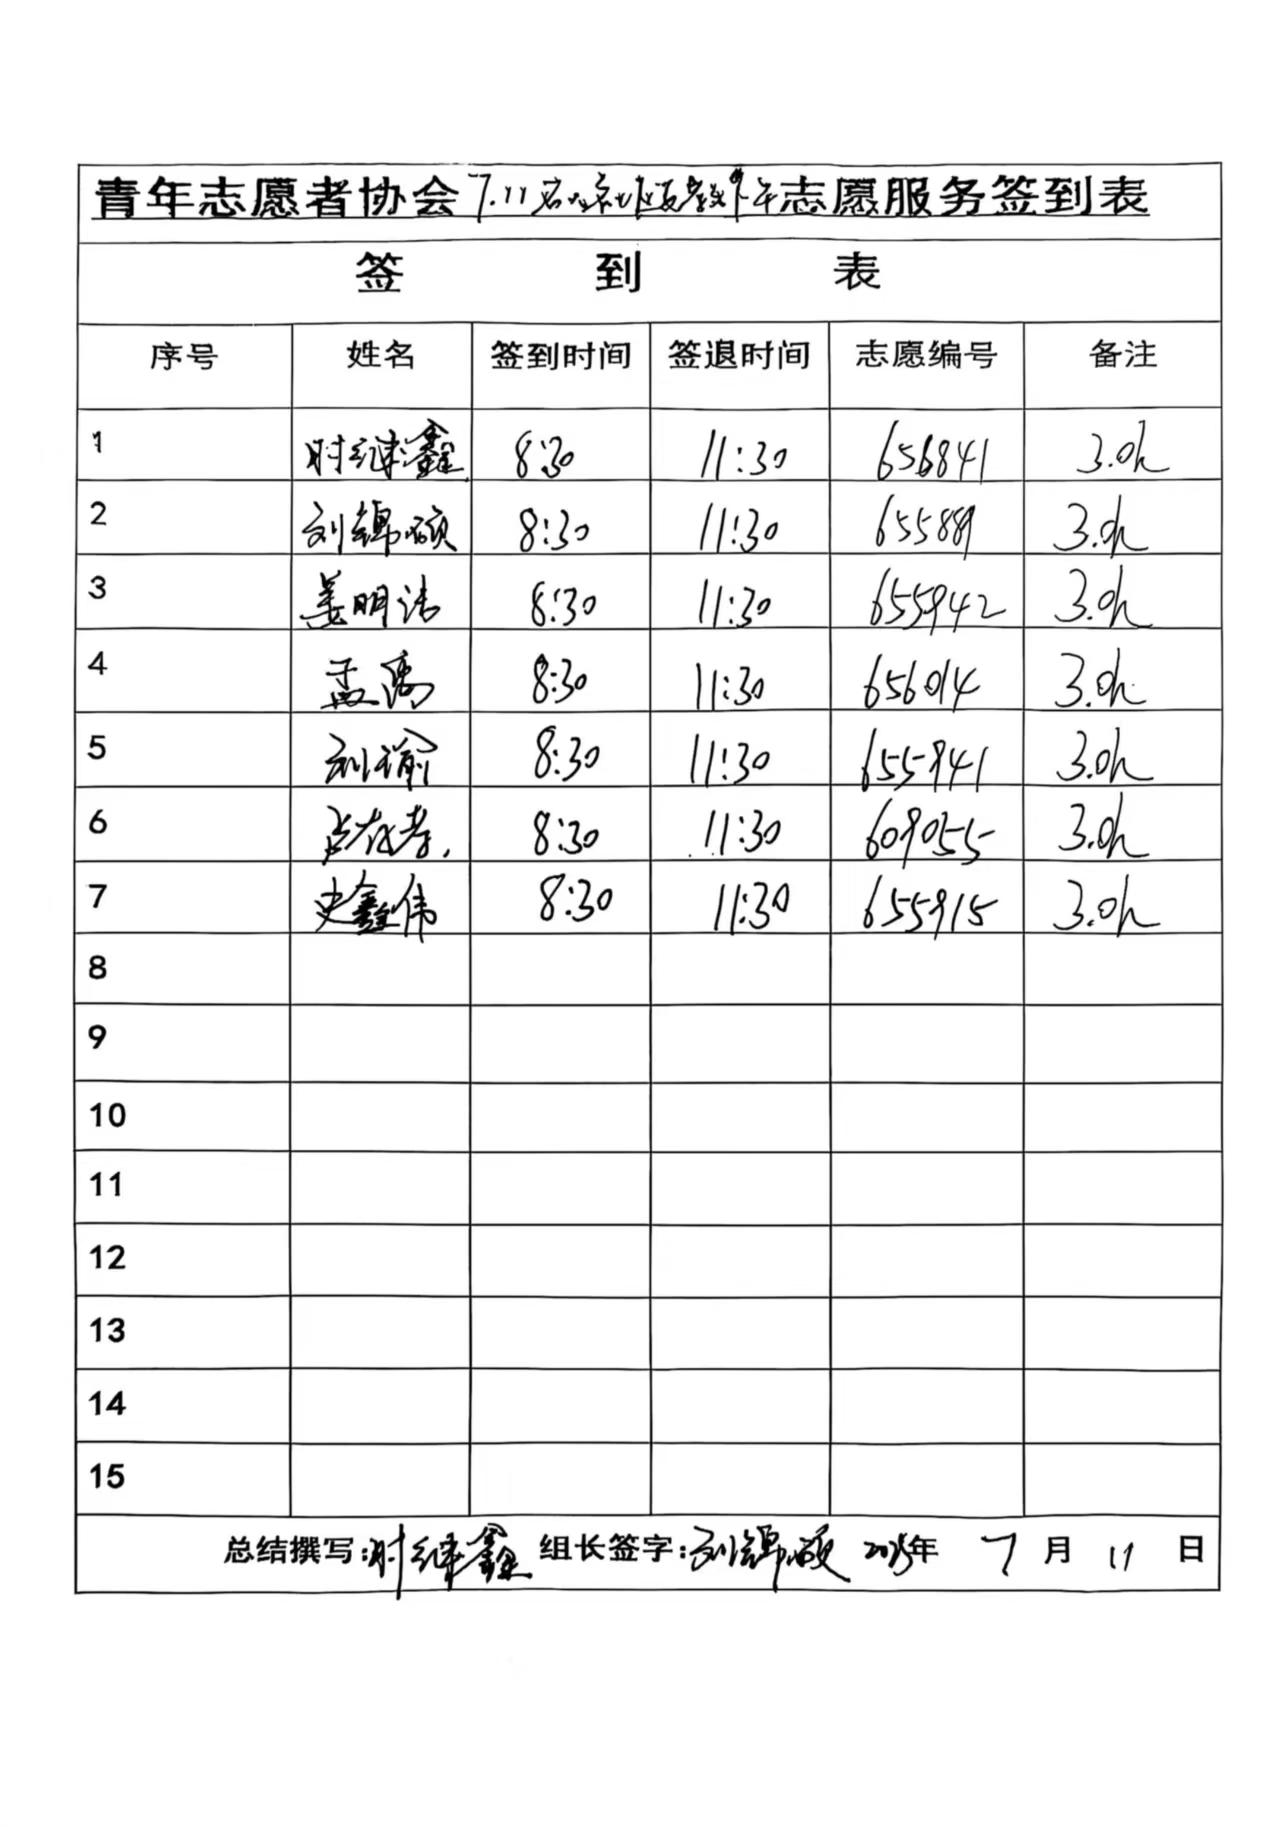 青年志愿者协会7.11 社区 午志愿服务签到表
签 到 表
序号 姓名 签到时间 签退时间 志愿编号 备注
1 时继鑫 8:30 11:30 656841 3.0h
2 刘锦硕 8:30 11:30 655889 3.0h
3 姜明 8:30 11:30 655942 3.0h
4 孟 8:30 11:30 656014 3.0h
5 刘瑜 8:30 11:30 655941 3.0h
6 8:30 11:30 609055 3.0h
7 史鑫伟 8:30 11:30 655915 3.0h
8
9
10
11
12
13
14
15
总结撰写:时继鑫 组长签字:刘锦硕 2025年 7 月 11 日